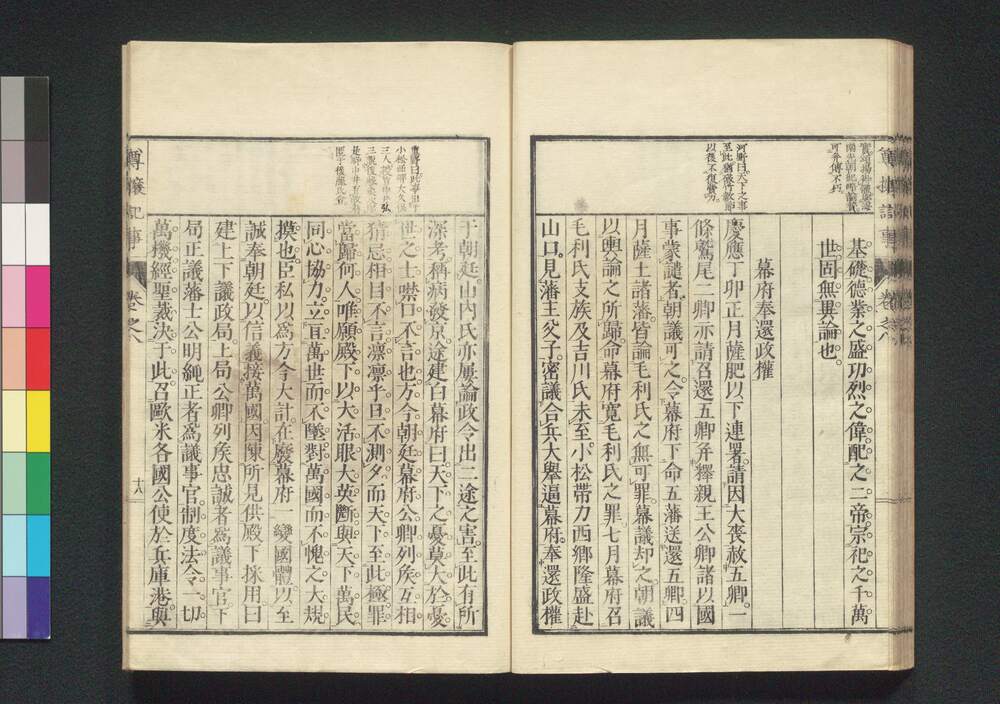 基礎德業之盛功烈之偉配之二帝宗祀之千萬
世固無異論也
幕府奉還政權
慶應丁卯正月薩肥以下連署請因大喪赦五卿一
條鷲尾二卿亦請召還五卿并釋親王公卿諸以國
事蒙譴者朝議可之令幕府下命五藩送還五卿四
月薩土諸藩皆論毛利氏之無可罪幕議却之朝議
以輿論之所歸命幕府寬毛利氏之罪七月幕府召
毛利氏支族及吉川氏未至小松帶刀西鄉隆盛赴
山口見藩主父子密議合兵大擧逼幕府奉還政權
河野曰天下之事
以後不復實力
于朝廷山內氏亦屢論政令出二途之害至此有所
深考稱病發京途建白幕府曰天下之憂莫大於憂
世之士噤口不言也方今朝廷幕府公卿列矦互相
猜忌相目不言凜凜乎旦不測夕而天下至此極罪
當歸何人唯願殿下以大活眼大英斷與天下萬民
同心協力立亘萬世而不墜對萬國而不愧之大規
摸也臣私以爲方今大計在廢幕府一變國體以至
誠奉朝廷以信義接萬國因陳所見供殿下採用曰
建上下議政局上局公卿列矦忠誠者爲議事官下
局正議藩士公明純正者爲議事官制度法令一切
萬機經聖裁決于此召歐米各國公使於兵庫港與
尊攘紀事
卷之八
十八